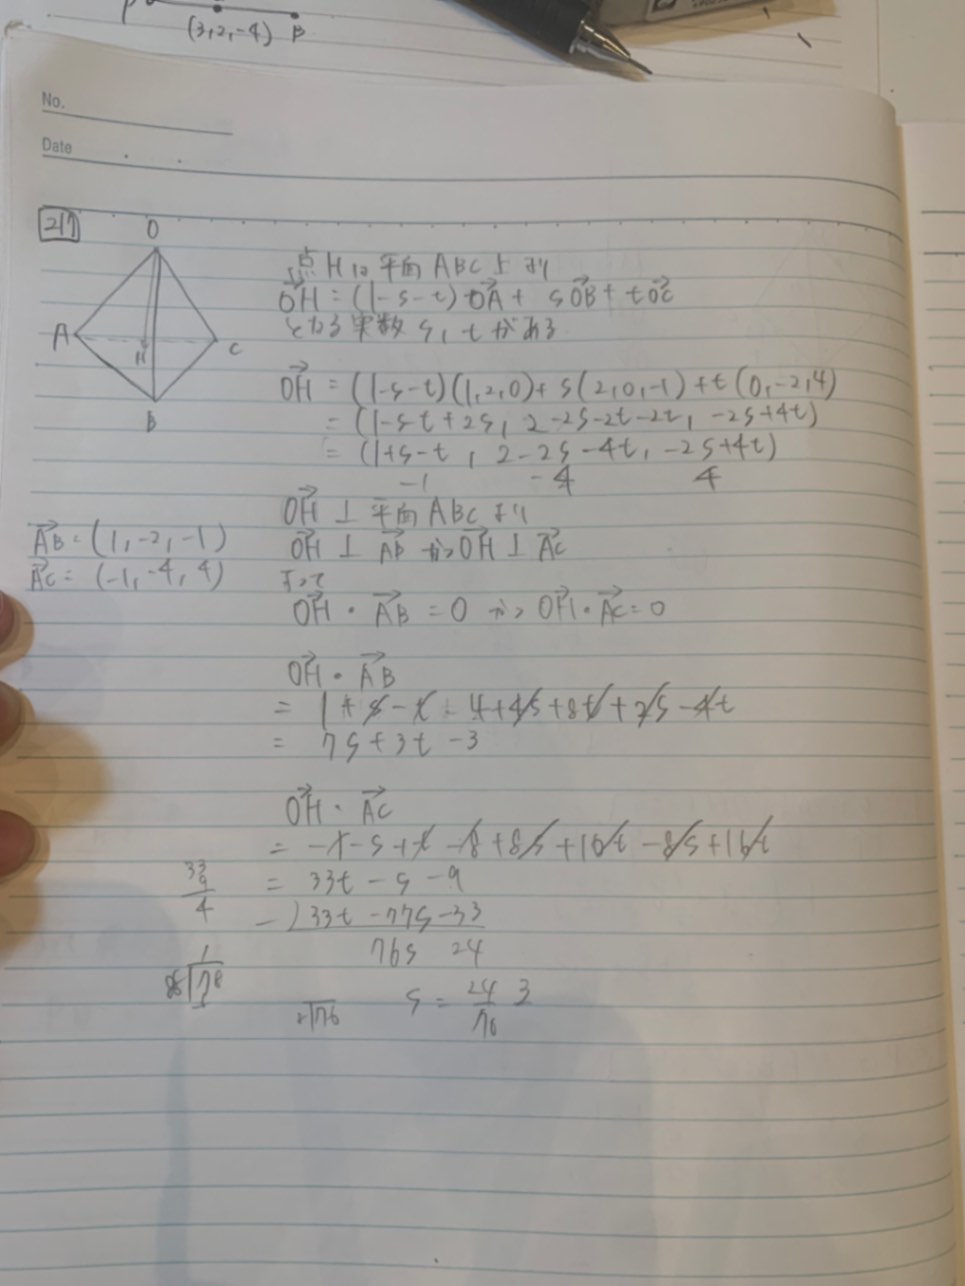 (3,2,-4) B
No.
Date
217
O
A
H
C
B
点Hは平面ABC上より
OH→ = (1-s-t)OA→ + sOB→ + tOC→
となる実数s, tがある
OH→ = (1-s-t)(1,2,0)+s(2,0,-1)+t(0,-2,4)
= (1-s-t+2s, 2-2s-2t-2t, -2s+4t)
= (1+s-t, 2-2s-4t, -2s+4t)
-1 -4 4
OH→ ⊥ 平面ABCより
AB→ = (1,-2,-1)
OH→ ⊥ AB→ かつ OH→ ⊥ AC→
AC→ = (-1,-4,4)
よって
OH→・AB→ = 0 かつ OH→・AC→ = 0
OH→・AB→
= 1+s-t-4+4s+8t+2s-4t
= 7s+3t-3
OH→・AC→
= -1-s+t-8+8s+16t-8s+16t
= 33t-s-9
-) 33t-77s-33
76s 24
s = 24/76 3
2)76